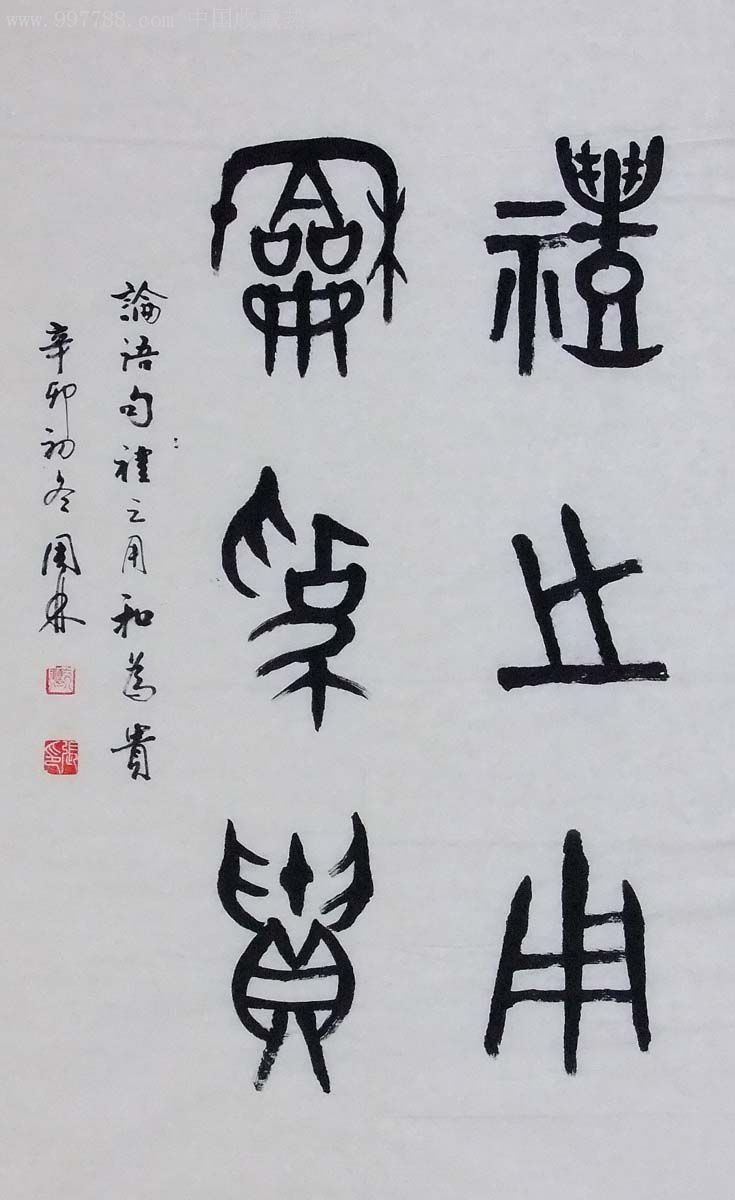 www.997788.com 中国收藏热线
禮之用
龢為貴
論語句禮之用和為貴
辛卯初冬周林